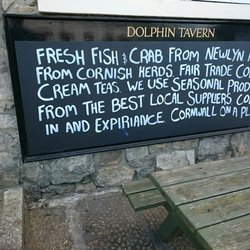 DOLPHIN TAVERN
FRESH FISH & CRAB FROM NEWLYN
FROM CORNISH HERDS. FAIR TRADE CO
CREAM TEAS. WE USE SEASONAL PROD
FROM THE BEST LOCAL SUPPLIERS CO
IN AND EXPIRIANCE. CORNWALL ON A PL